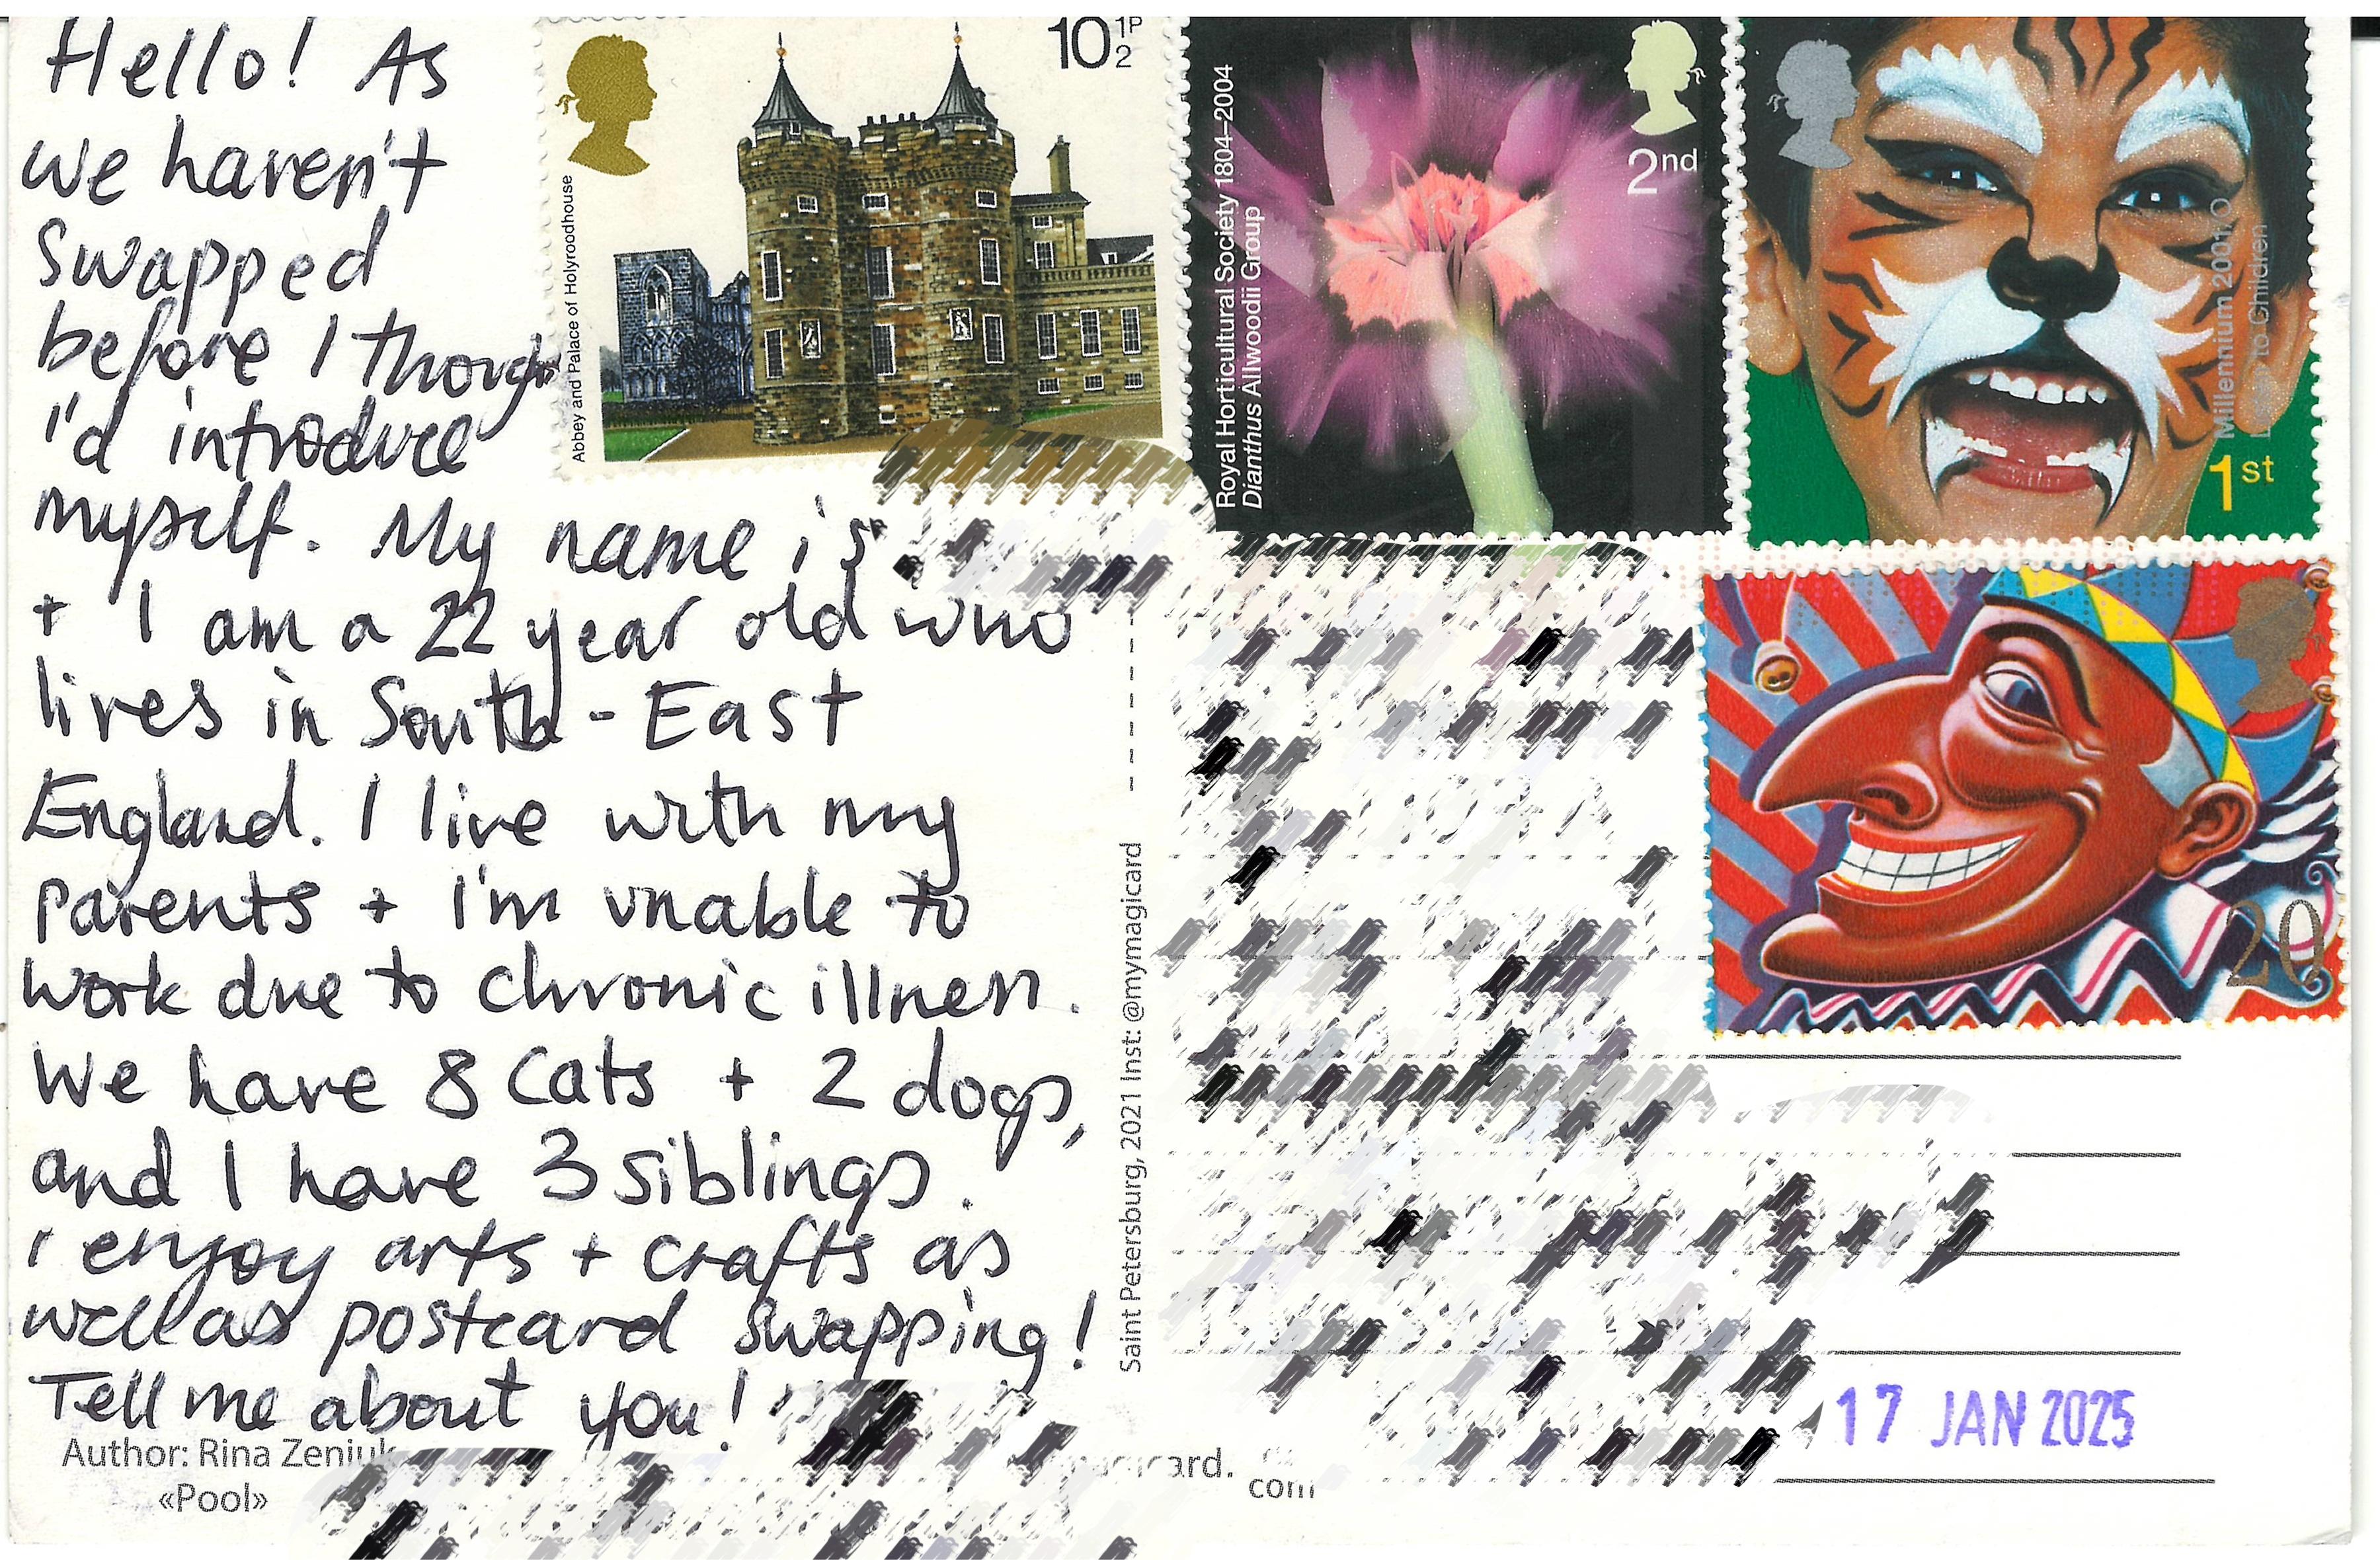 Hello! As
we haven't
swapped
before I though
I'd introduce
myself. My name is
+ I am a 22 year old who
lives in South-East
England. I live with my
parents + I'm unable to
work due to chronic illness.
We have 8 cats + 2 dogs,
and I have 3 siblings.
I enjoy arts + crafts as
well as postcard swapping!
Tell me about you!
Author: Rina Zeniuk
«Pool»
Abbey and Palace of Holyroodhouse
10 1/2 P
Royal Horticultural Society 1804–2004
Dianthus Allwoodii Group
2nd
Millennium 2001
to Children
1st
20
Saint Petersburg, 2021 Inst: @mymagicard
com
17 JAN 2025